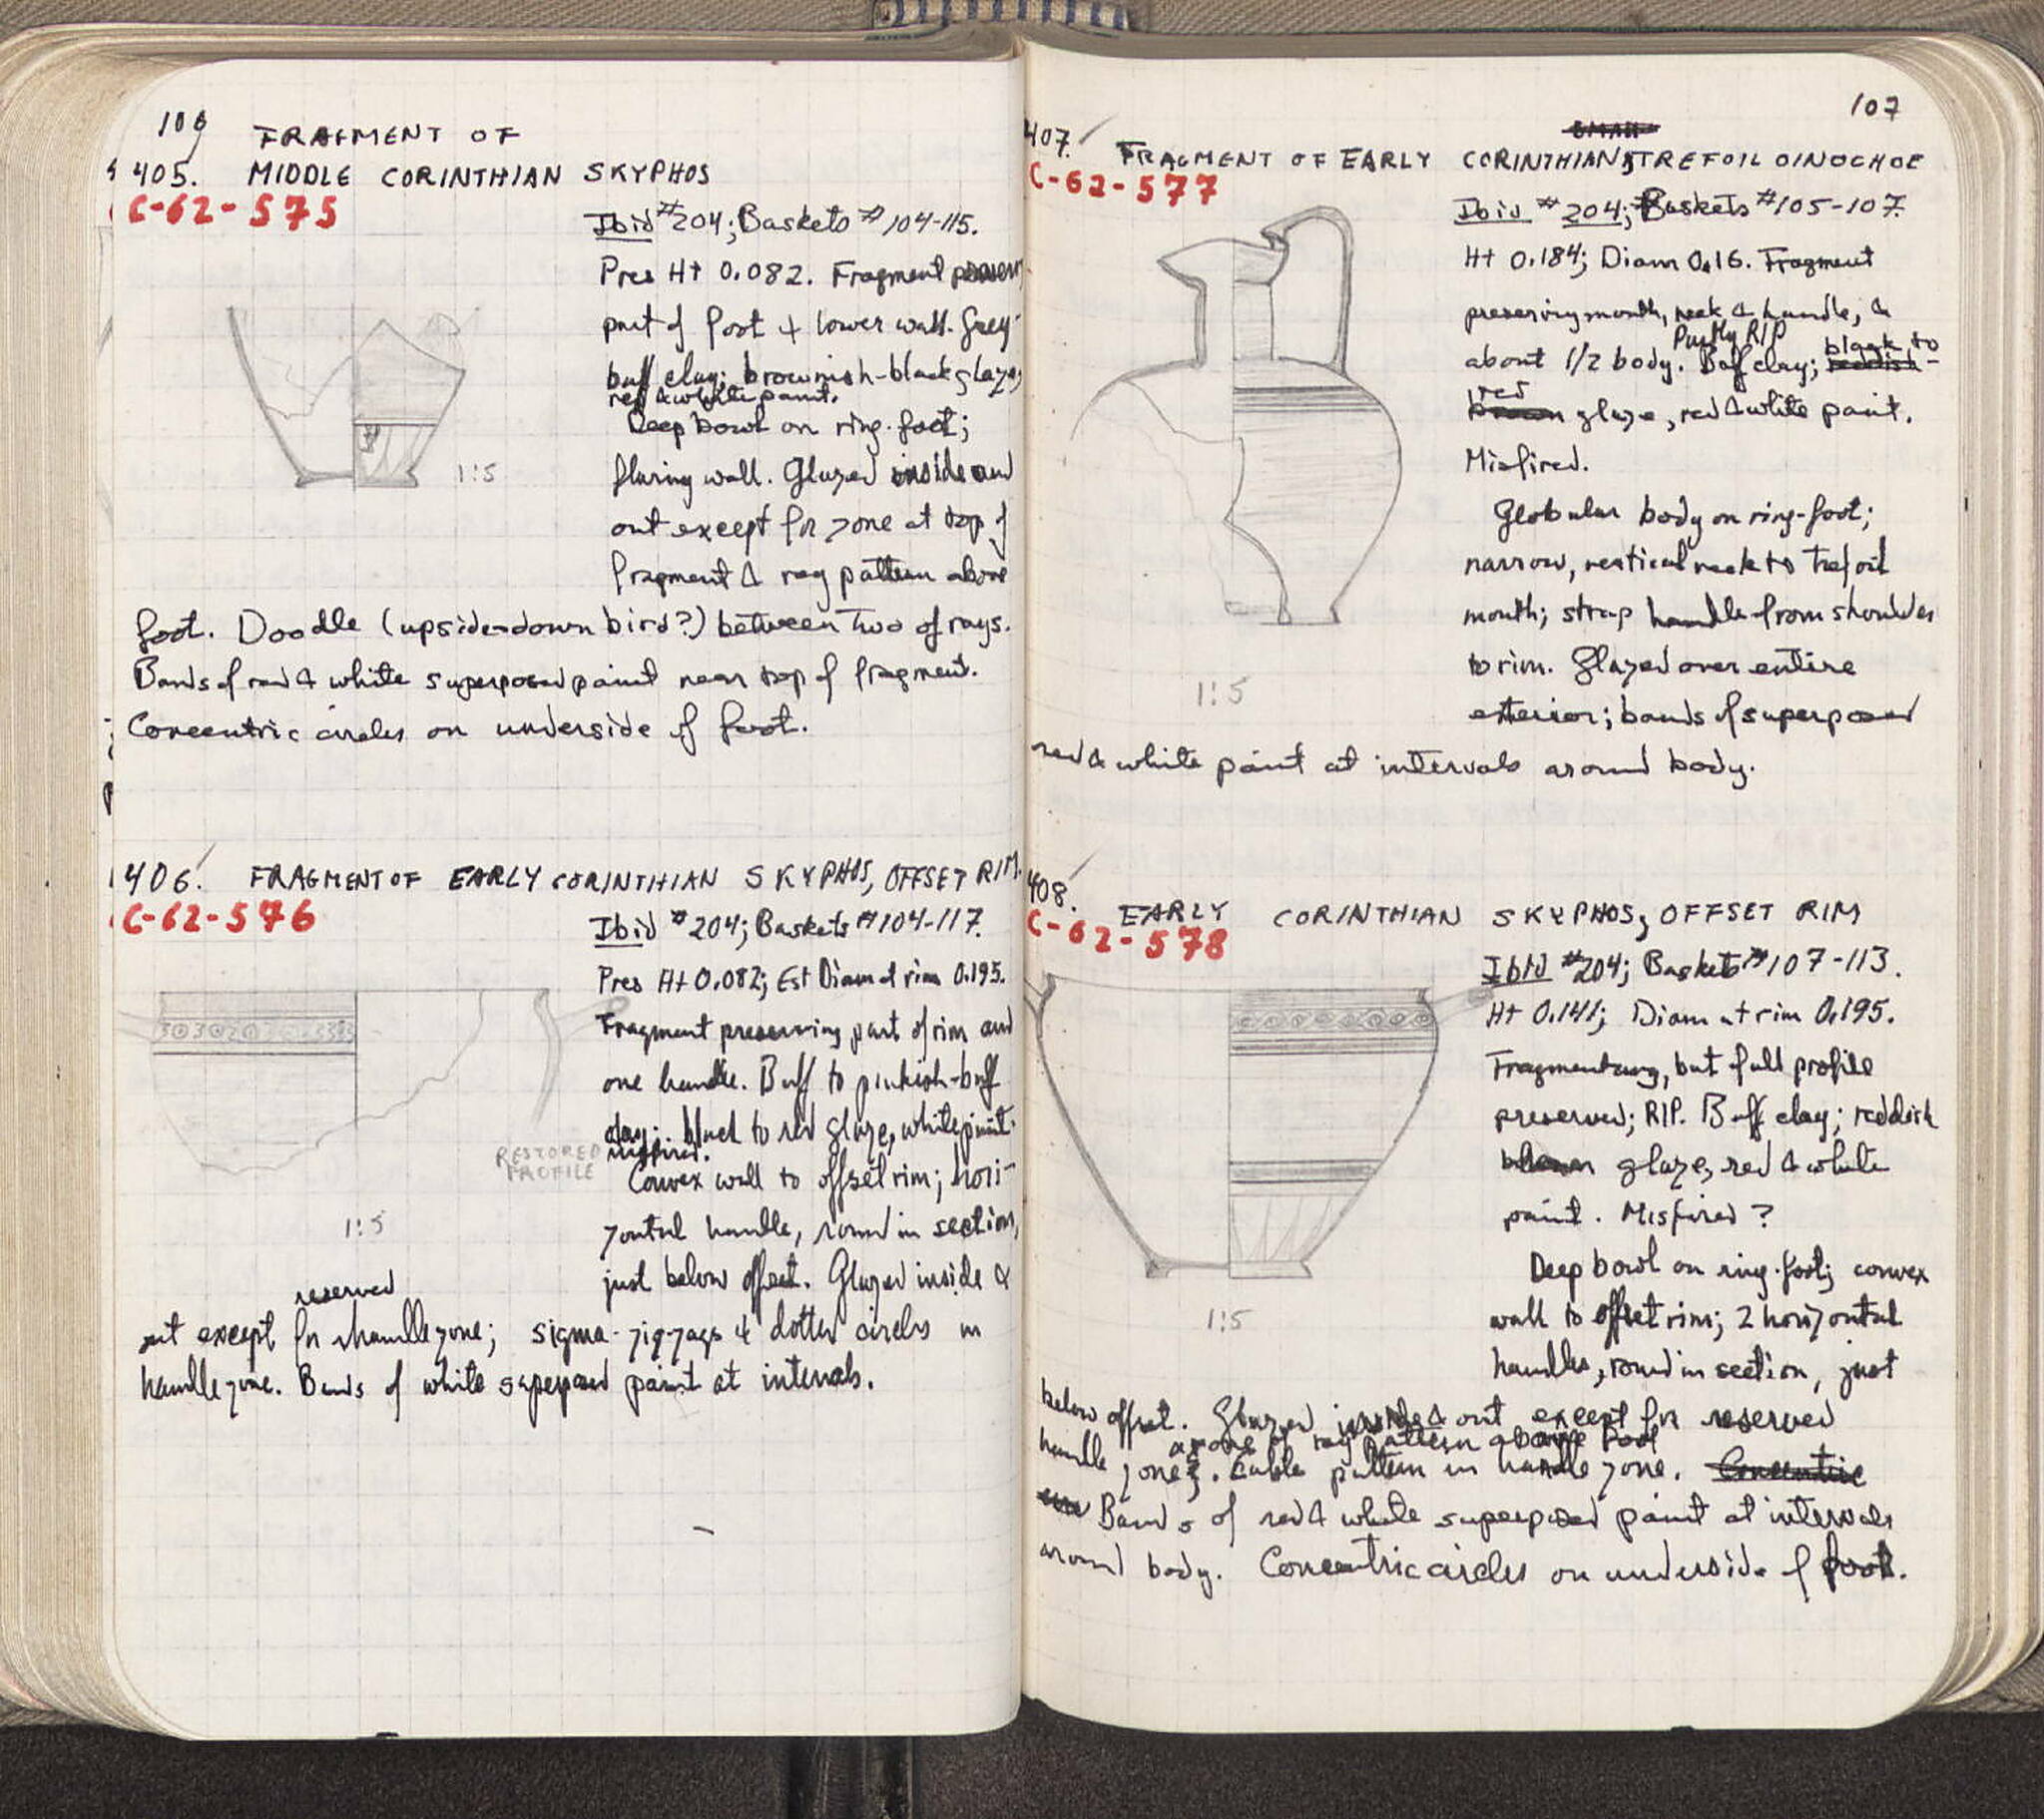 106
FRAGMENT OF
405. MIDDLE CORINTHIAN SKYPHOS
C-62-575
Ibid #204; Baskets #104-115.
Pres Ht 0.082. Fragment
part of foot & lower wall. Grey-
buff clay; brownish-black glaze,
red & white paint.
Deep bowl on ring-foot;
flaring wall. Glazed inside and
out except for zone at top of
fragment & ray pattern above
foot. Doodle (upside-down bird?) between two of rays.
Bands of red & white superposed paint near top of fragment.
Concentric circles on underside of foot.
1:5
406. FRAGMENT OF EARLY CORINTHIAN SKYPHOS, OFFSET RIM.
C-62-576
Ibid #204; Baskets #104-117.
Pres Ht 0.082; Est Diam at rim 0.195.
Fragment preserving part of rim and
one handle. Buff to pinkish-buff
clay; black to red glaze, white paint.
Misfired.
Convex wall to offset rim; hori-
zontal handle, round in section,
just below offset. Glazed inside &
reserved
out except for handle zone; sigma-zig-zags & dotted circles in
handle zone. Bands of white superposed paint at intervals.
RESTORED
PROFILE
1:5
107
407.
FRAGMENT OF EARLY CORINTHIAN TREFOIL OINOCHOE
C-62-577
Ibid #204; Baskets #105-107.
Ht 0.184; Diam 0.16. Fragment
preserving mouth, neck & handle, &
Partly RIP
about 1/2 body. Buff clay; black to
red glaze, red & white paint.
Misfired.
Globular body on ring-foot;
narrow, vertical neck to trefoil
mouth; strap handle from shoulder
to rim. Glazed over entire
exterior; bands of superposed
red & white paint at intervals around body.
1:5
408.
EARLY CORINTHIAN SKYPHOS, OFFSET RIM
C-62-578
Ibid #204; Baskets #107-113.
Ht 0.141; Diam at rim 0.195.
Fragmentary, but full profile
preserved; RIP. Buff clay; reddish
glaze, red & white
paint. Misfired?
Deep bowl on ring-foot; convex
wall to offset rim; 2 horizontal
handles, round in section, just
below offset. Glazed inside & out except for reserved
ray pattern above foot
handle zone. Cable pattern in handle zone. Concentric
Bands of red & white superposed paint at intervals
around body. Concentric circles on underside of foot.
1:5